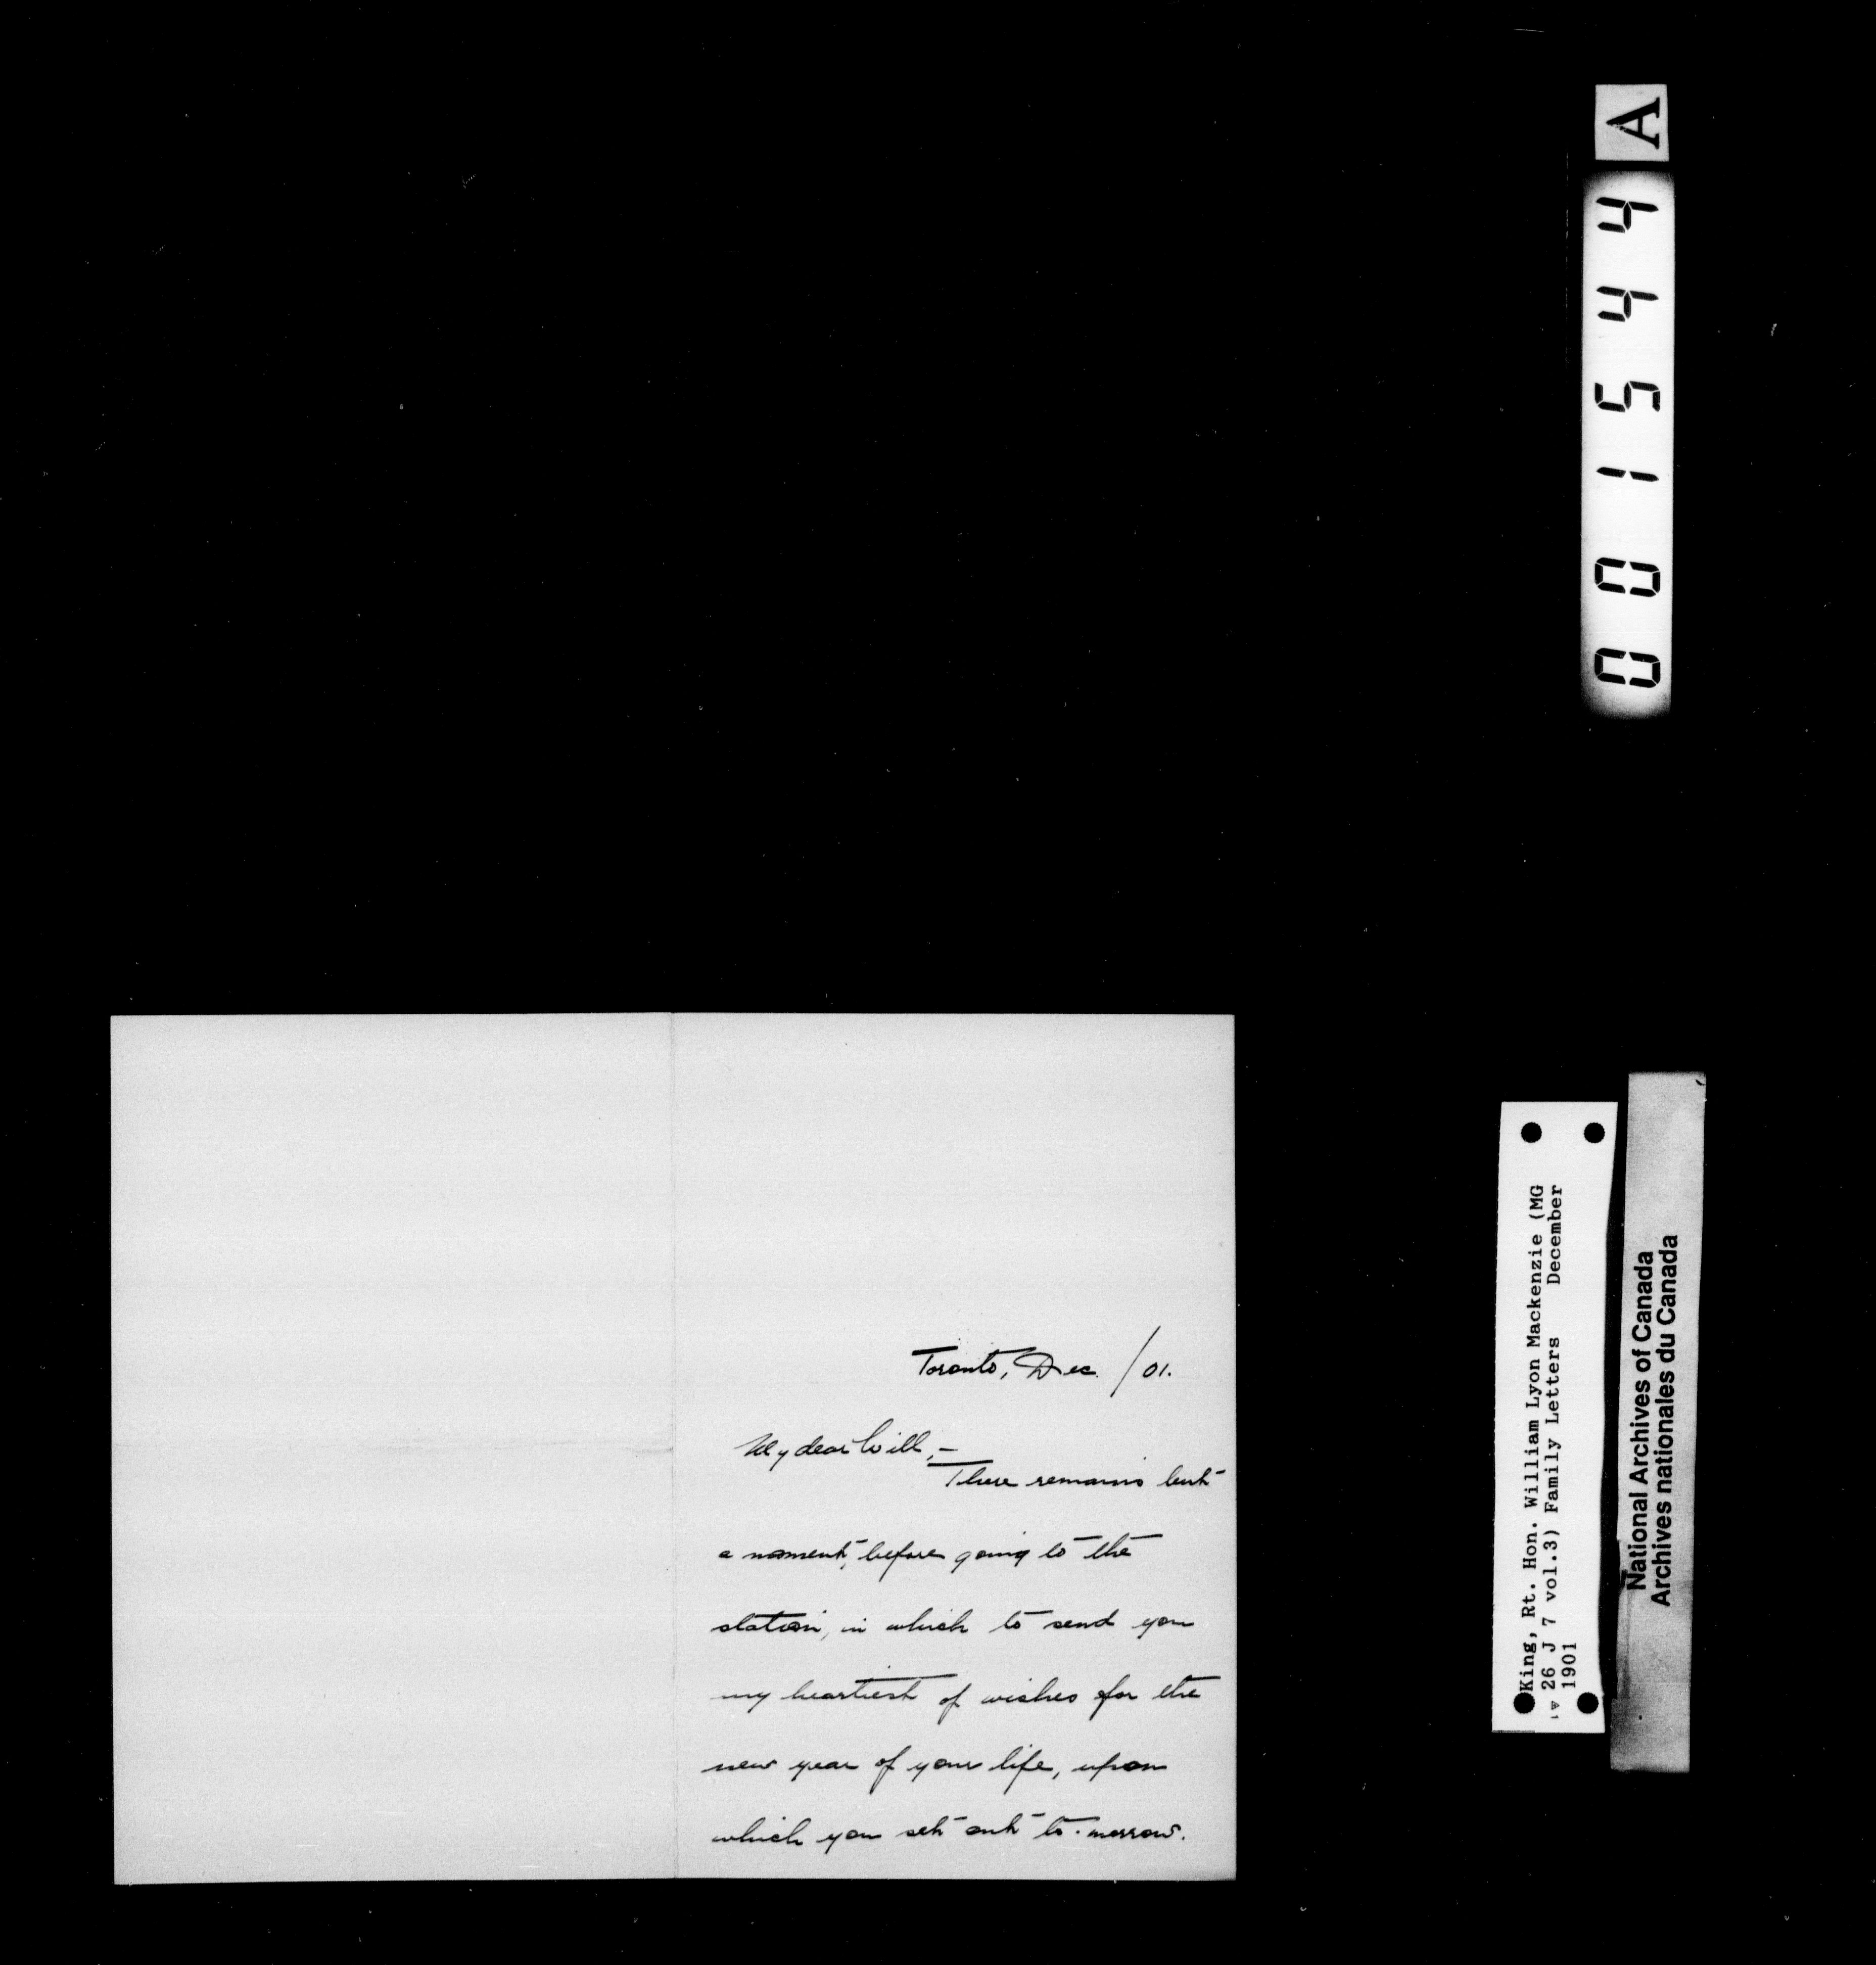 Toronto, Dec. /01.
My dear Will,—
There remains but
a moment, before going to the
station, in which to send you
my heartiest of wishes for the
new year of your life, upon
which you set out to-morrow.
A
001544
King, Rt. Hon. William Lyon Mackenzie (MG
26 J 7 vol.3) Family Letters December
1901
National Archives of Canada
Archives nationales du Canada